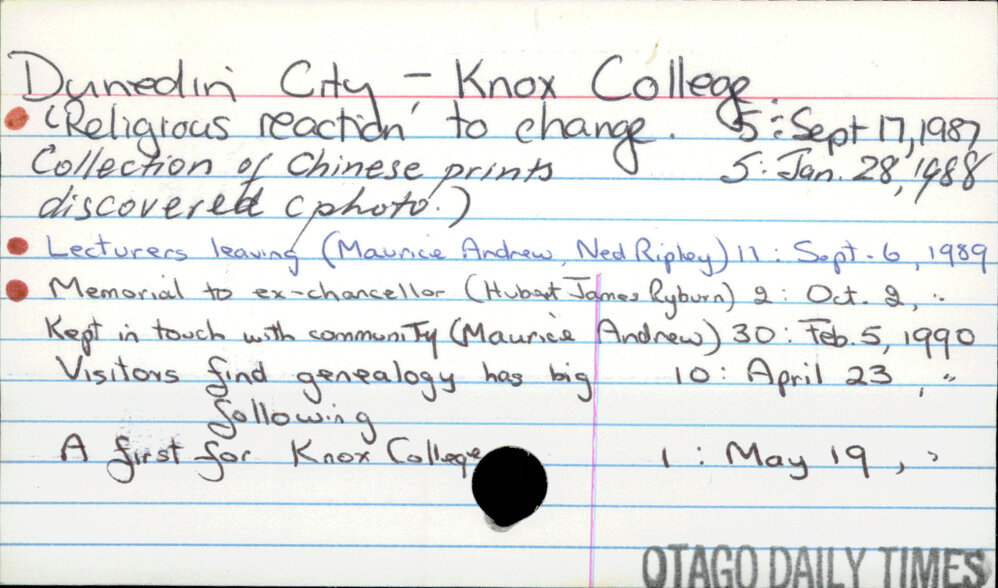 Dunedin City - Knox College.
'Religious reaction' to change. 5: Sept 17, 1987
Collection of Chinese prints 5: Jan. 28, 1988
discovered (photo.)
Lecturers leaving (Maurice Andrew, Ned Ripley) 11: Sept. 6, 1989
Memorial to ex-chancellor (Hubert James Ryburn) 2: Oct. 2, "
Kept in touch with community (Maurice Andrew) 30: Feb. 5, 1990
Visitors find genealogy has big 10: April 23, "
following
A first for Knox College 1: May 19, "
OTAGO DAILY TIMES